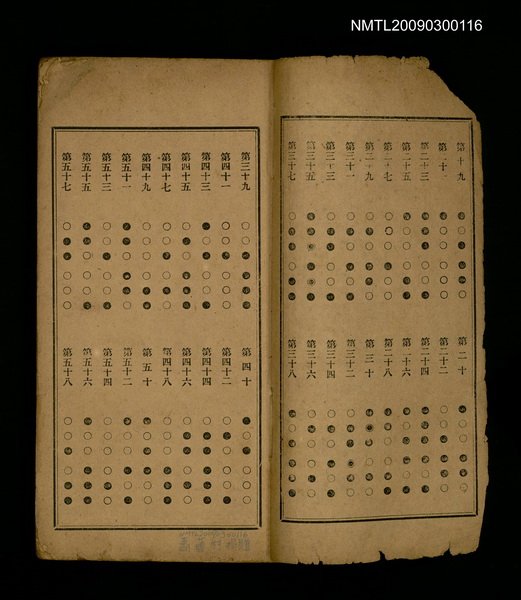 NMTL20090300116
第十九
第二十一
第二十三
第二十五
第二十七
第二十九
第三十一
第三十三
第三十五
第三十七
第二十
第二十二
第二十四
第二十六
第二十八
第三十
第三十二
第三十四
第三十六
第三十八
第三十九
第四十一
第四十三
第四十五
第四十七
第四十九
第五十一
第五十三
第五十五
第五十七
第四十
第四十二
第四十四
第四十六
第四十八
第五十
第五十二
第五十四
第五十六
第五十八